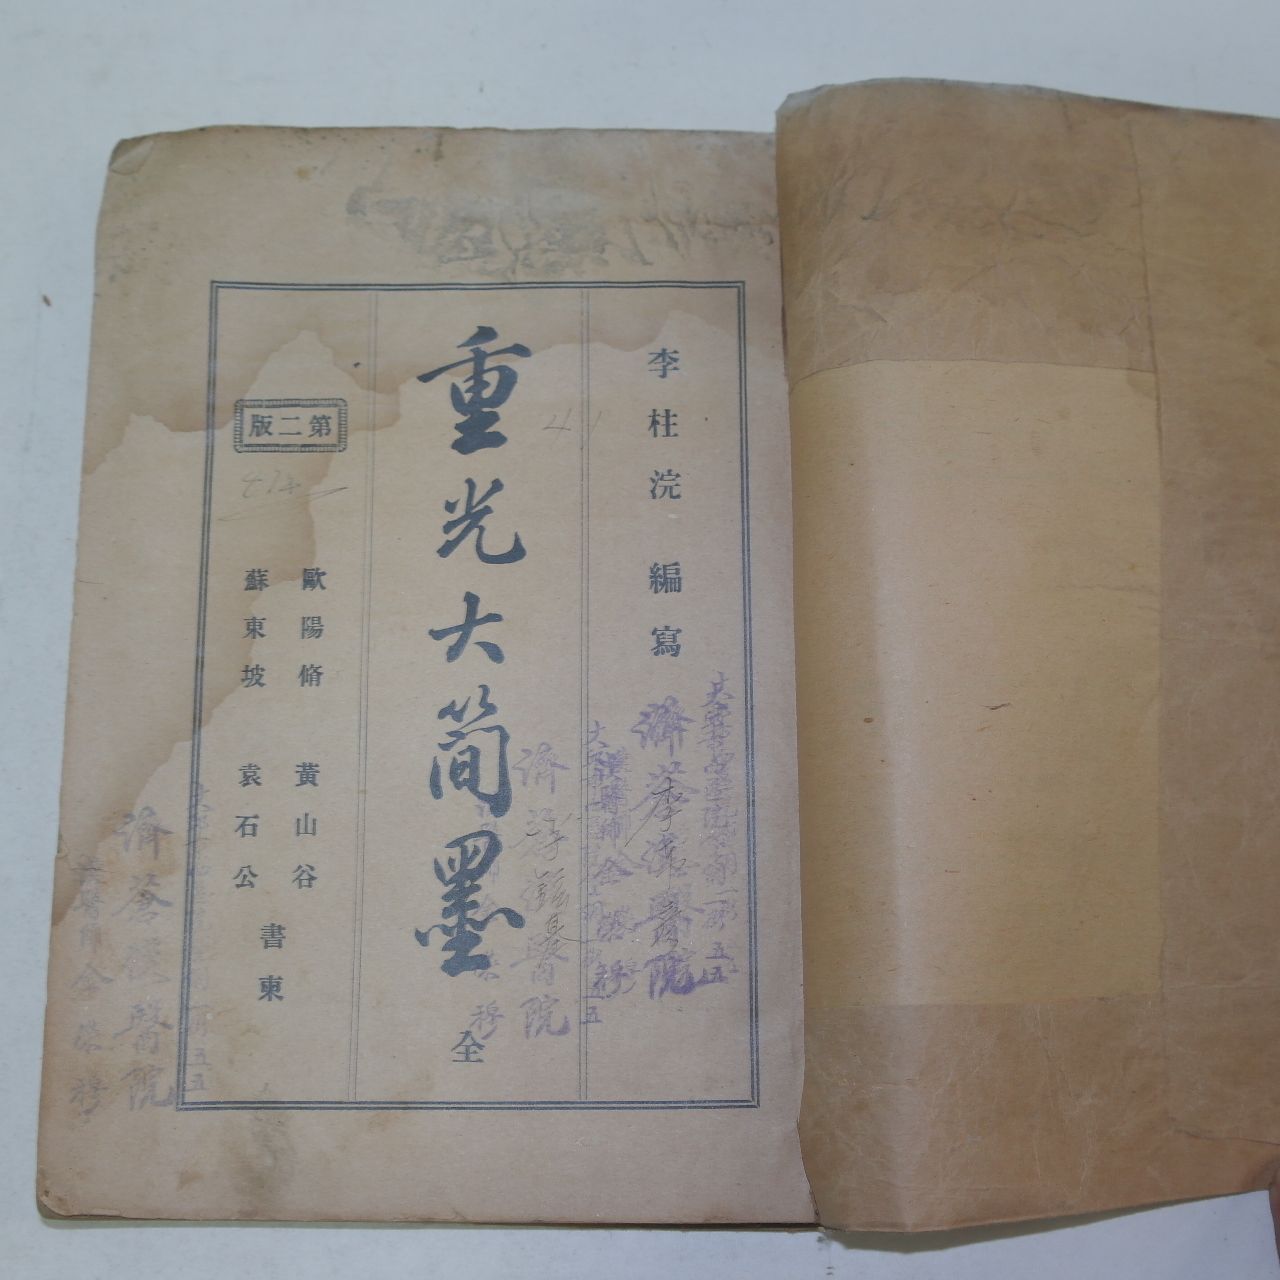 李柱浣 編寫
重光大簡墨 全
第二版
歐陽脩 黃山谷
蘇東坡 袁石公
書柬
濟蒼漢醫院
漢醫師金
濟蒼漢醫院
濟蒼漢醫院
漢醫師金